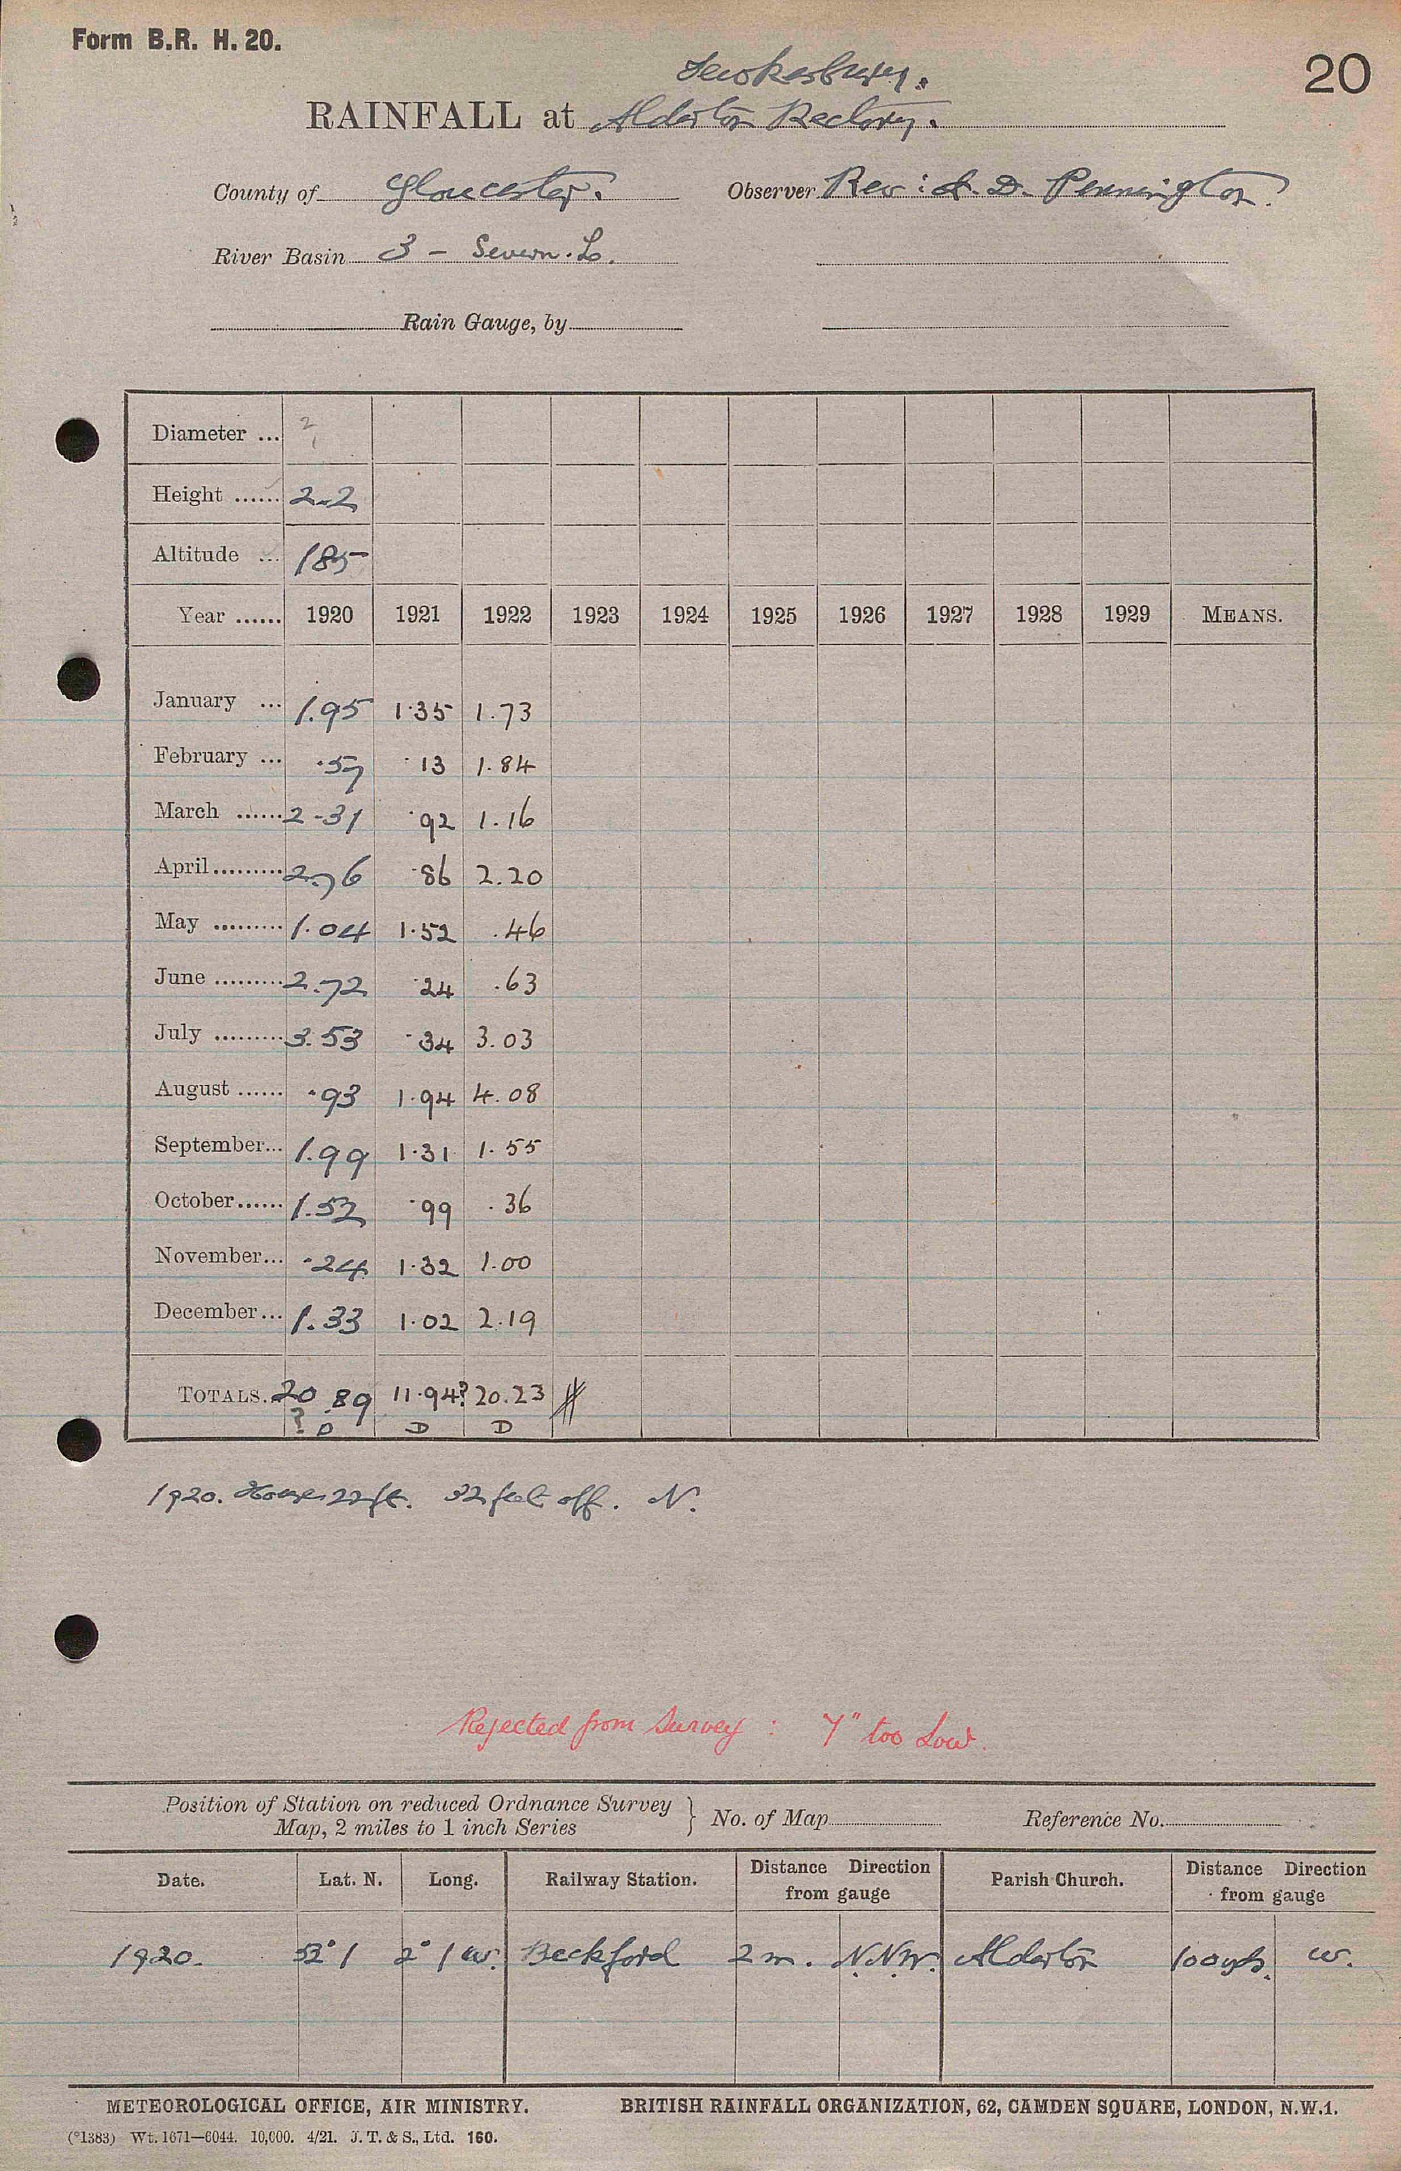 Form B.R. H. 20.
20
Tewkesbury.
RAINFALL at Alderton Rectory.
County of Gloucester. Observer Rev: A. D. Pennington.
River Basin 3 - Severn. L.
Rain Gauge, by
Diameter ...
Height ...... 2-2
Altitude ... 185
Year ...... 1920 1921 1922 1923 1924 1925 1926 1927 1928 1929 MEANS.
January ... 1.95 1.35 1.73
February ... .57 .13 1.84
March ...... 2-31 .92 1.16
April ......... 2.76 .86 2.20
May ......... 1.04 1.52 .46
June ......... 2.72 .24 .63
July ......... 3.53 .34 3.03
August ...... .93 1.94 4.08
September... 1.99 1.31 1.55
October...... 1.52 .99 .36
November... .24 1.32 1.00
December... 1.33 1.02 2.19
TOTALS. 20.89 11.94? 20.23
? D D D
1920. House 22ft. 32 feet off. N.
Rejected from Survey : 7" too Low.
Position of Station on reduced Ordnance Survey
Map, 2 miles to 1 inch Series } No. of Map Reference No.
Date. Lat. N. Long. Railway Station. Distance Direction from gauge Parish Church. Distance Direction from gauge
1920. 52° 1 2° 1 W. Beckford 2 m. N.N.W. Alderton 100 yds. W.
METEOROLOGICAL OFFICE, AIR MINISTRY. BRITISH RAINFALL ORGANIZATION, 62, CAMDEN SQUARE, LONDON, N.W.1.
(*1383) Wt. 1671—6044. 10,000. 4/21. J. T. & S., Ltd. 160.